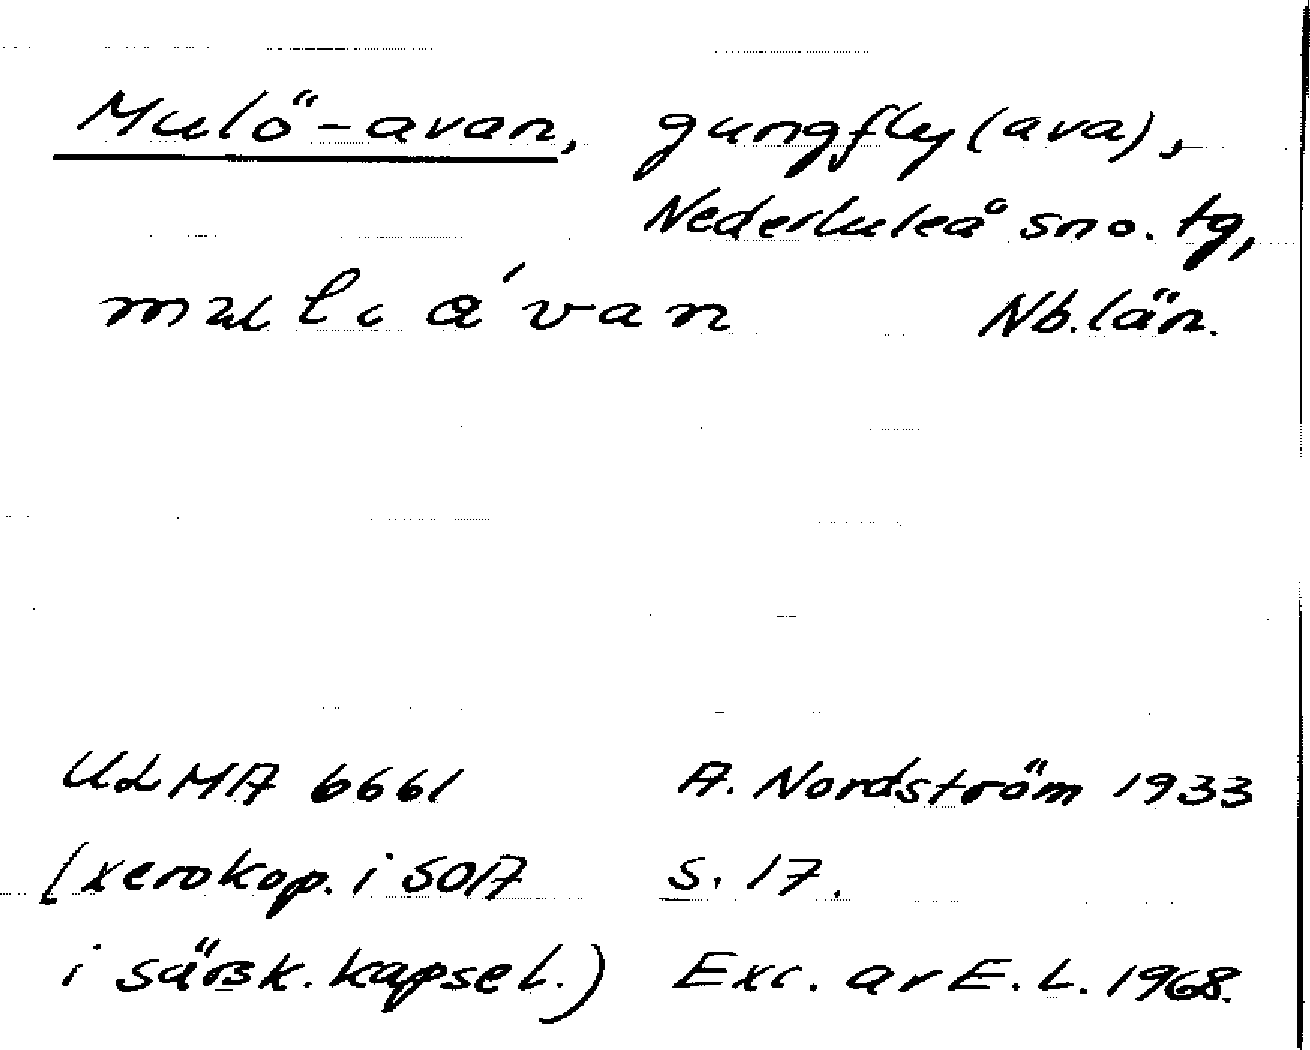 Mulö-avan, gungfly (ava),
Nederluleå sno. tg,
Nb. län.
ULMA 6661 A. Nordström 1933
(xerokop. i SOA s. 17.
i särsk. kapsel.) Exc. av E. L. 1968.